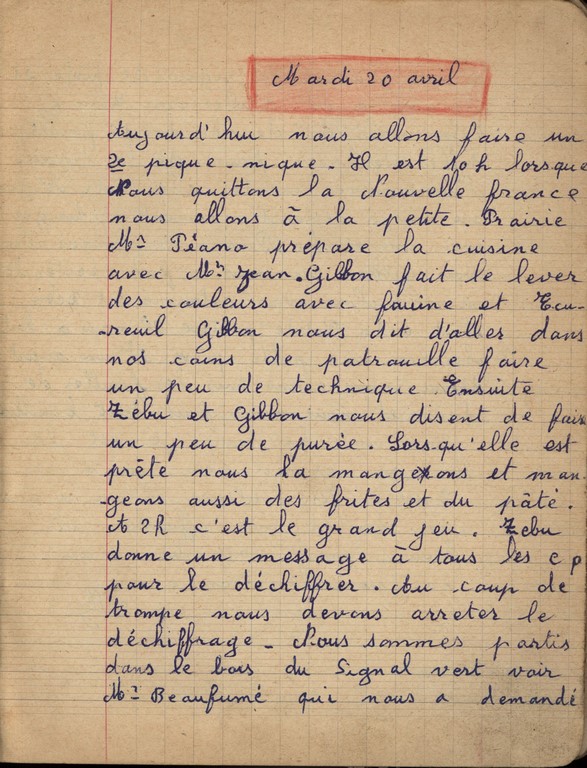 Mardi 20 avril
Aujourd'hui nous allons faire un
2e pique-nique. Il est 10h lorsque
Nous quittons la Nouvelle france
nous allons à la petite. Prairie
Mr Péano prépare la cuisine
avec Mr Jean. Gibbon fait le lever
des couleurs avec fouine et Ecu-
-reuil Gibbon nous dit d'aller dans
nos coins de patrouille faire
un peu de technique. Ensuite
Zébu et Gibbon nous disent de faire
un peu de purée. Lorsqu'elle est
prête nous la mangeons et man-
-geons aussi des frites et du pâté.
A 2h c'est le grand jeu. Zebu
donne un message à tous les c p
pour le déchiffrer. Au coup de
trompe nous devons arreter le
déchiffrage - Nous sommes partis
dans le bois du Signal vert voir
Mr Beaufumé qui nous a demandé